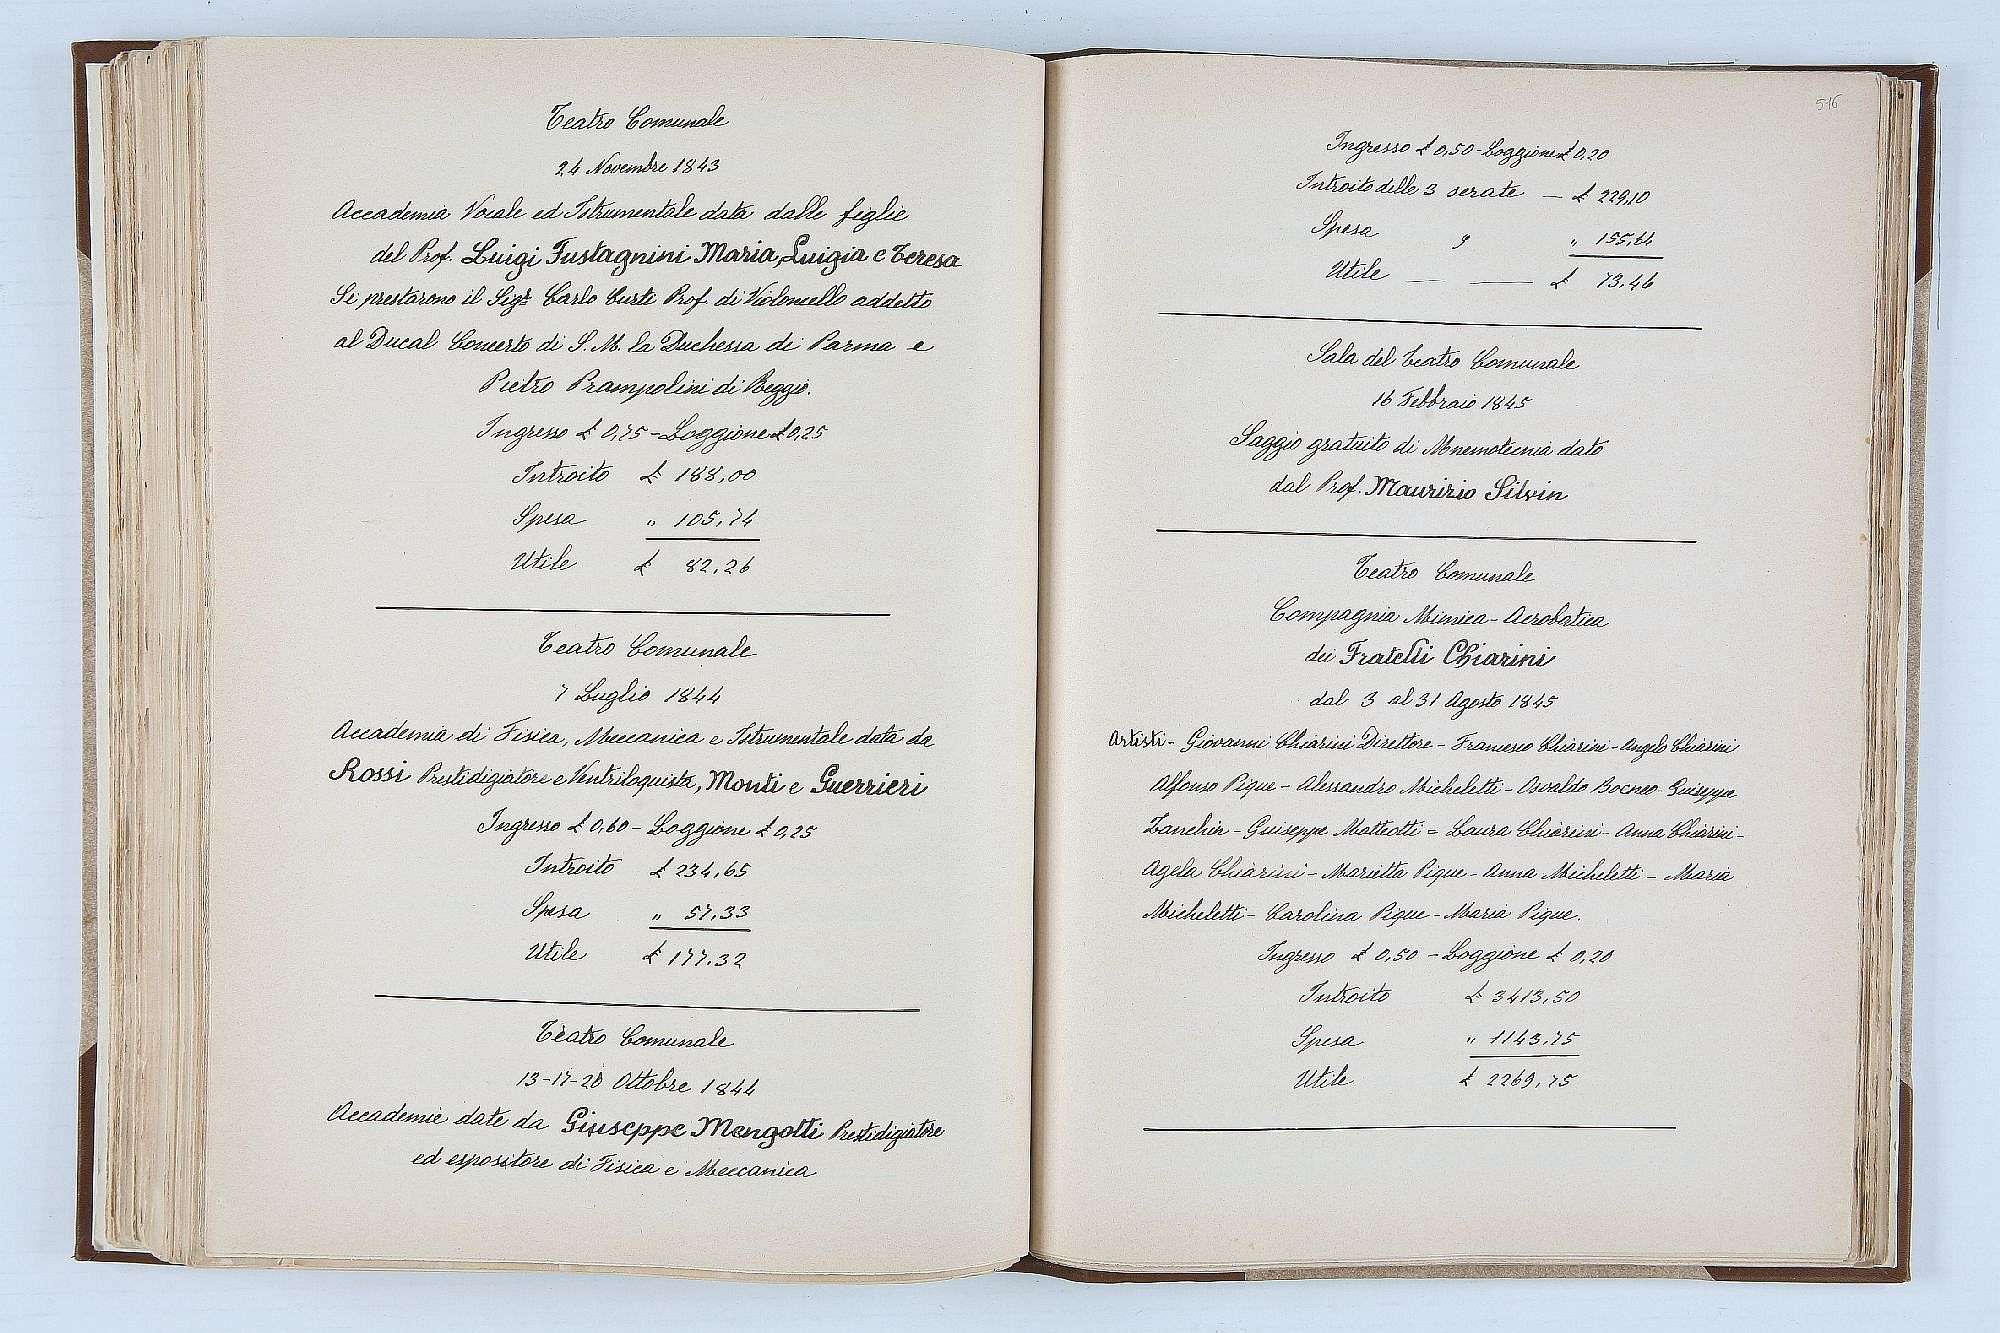 Teatro Comunale
24 Novembre 1843
Accademia Vocale ed Istrumentale data dalle figlie
del Prof. Luigi Fustagnini Maria, Luigia e Teresa
Si prestarono il Sigr Carlo Curti Prof. di Violoncello addetto
al Ducal Concerto di S. M. la Duchessa di Parma e
Pietro Prampolini di Reggio.
Ingresso £ 0,75 - Loggione £ 0,25
Introito £ 188,00
Spesa „ 105,74
Utile £ 82,26
Teatro Comunale
7 Luglio 1844
Accademia di Fisica, Meccanica e Istrumentale data da
Rossi Prestidigiatore e Ventriloquista, Monti e Guerrieri
Ingresso £ 0,60 - Loggione £ 0,25
Introito £ 234,65
Spesa „ 57,33
Utile £ 177,32
Teatro Comunale
13-17-20 Ottobre 1844
Accademie date da Giuseppe Mengotti Prestidigiatore
ed espositore di Fisica e Meccanica
516
Ingresso £ 0,50 - Loggione £ 0,20
Introito delle 3 serate — £ 229,10
Spesa „ „ 155,64
Utile — — £ 73,46
Sala del Teatro Comunale
16 Febbraio 1845
Saggio gratuito di Mnemotecnia dato
dal Prof. Maurizio Silvin
Teatro Comunale
Compagnia Mimica - Acrobatica
dei Fratelli Chiarini
dal 3 al 31 Agosto 1845
Artisti - Giovanni Chiarini Direttore - Francesco Chiarini - Angelo Chiarini
Alfonso Pique - Alessandro Micheletti - Osvaldo Bocneo Guiseppe
Zanchin - Guiseppe Matteotti = Laura Chiarini - Anna Chiarini -
Agela Chiarini - Marietta Pique - Anna Micheletti - Maria
Micheletti - Carolina Pique - Maria Pique.
Ingresso £ 0,50 - Loggione £ 0,20
Introito £ 3413,50
Spesa „ 1143,75
Utile £ 2269,75